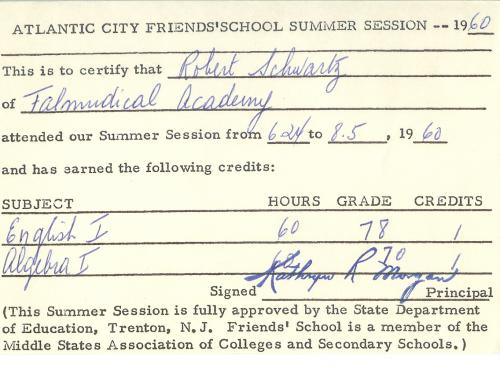 ATLANTIC CITY FRIENDS' SCHOOL SUMMER SESSION -- 1960
This is to certify that Robert Schwartz
of Talmudical Academy
attended our Summer Session from 6-24 to 8.5, 1960
and has earned the following credits:
SUBJECT HOURS GRADE CREDITS
English I 60 78 1
Algebra I 60 70 1
Signed Kathryn R Morgan Principal
(This Summer Session is fully approved by the State Department
of Education, Trenton, N.J. Friends' School is a member of the
Middle States Association of Colleges and Secondary Schools.)